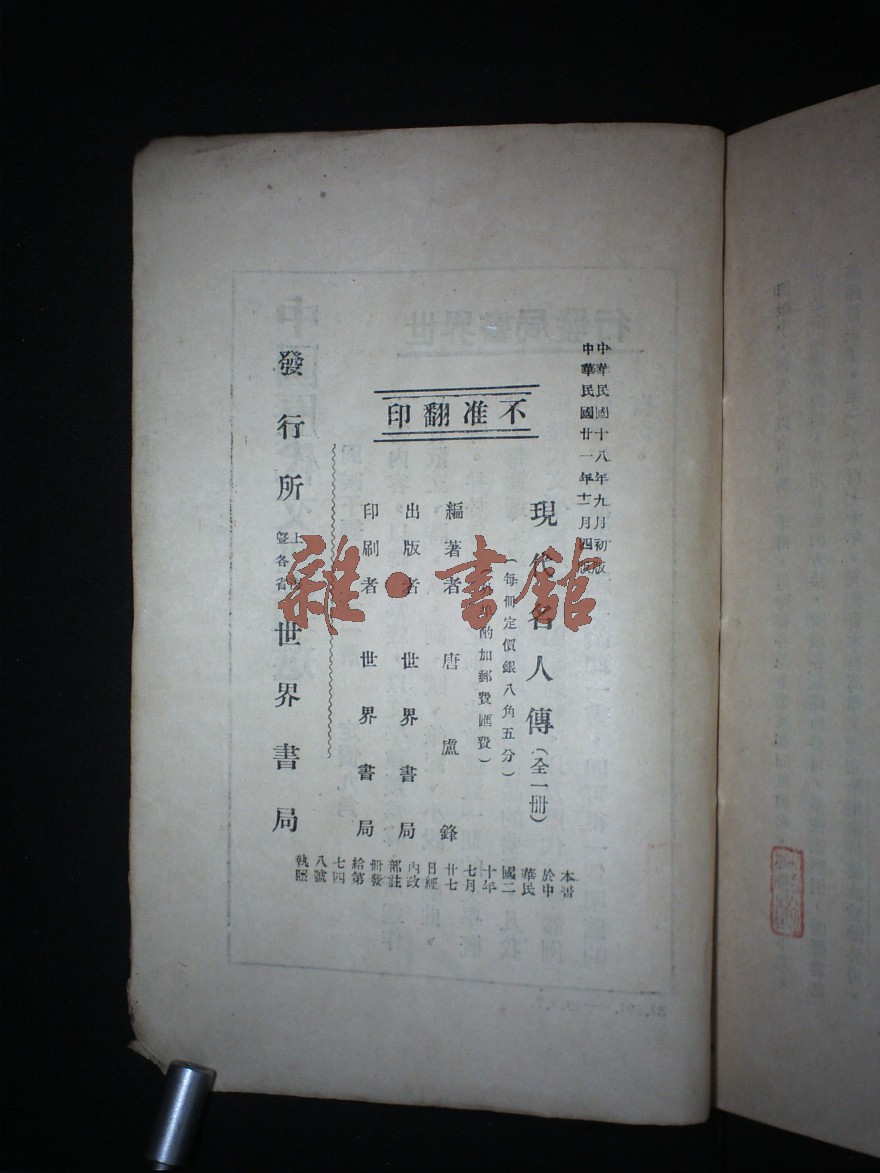 中華民國十八年九月初版
中華民國廿一年十二月四版
不准翻印
現代名人傳（全一冊）
（每冊定價銀八角五分）
酌加郵費匯費）
編著者 唐盧鋒
出版者 世界書局
印刷者 世界書局
發行所 上 各省 世界書局
本書
於中
華民
國二
十年
七月
廿七
日經
內政
部註
冊發
給第
七四
八號
執照
雜·書館